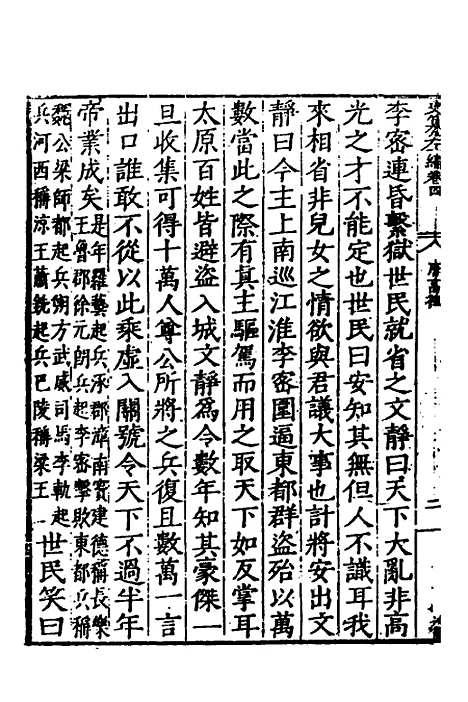 李密連昏繫獄世民就省之文靜曰天下大亂非高
光之才不能定也世民曰安知其無但人不識耳我
來相省非兒女之情欲與君議大事也計將安出文
靜曰今主上南巡江淮李密圍逼東都群盜殆以萬
數當此之際有真主驅駕而用之取天下如反掌耳
太原百姓皆避盜入城文靜為令數年知其豪傑一
旦收集可得十萬人尊公所將之兵復且數萬一言
出口誰敢不從以此乘虛入關號令天下不過半年
帝業成矣
是年羅藝起兵涿郡漳南竇建德稱長樂
王魯郡徐元朗兵起李密擊敗東都兵稱
魏公梁師都起兵朔方武威司馬李軌起
兵河西稱涼王蕭銑起兵巴陵稱梁王
世民笑曰
唐高祖
二